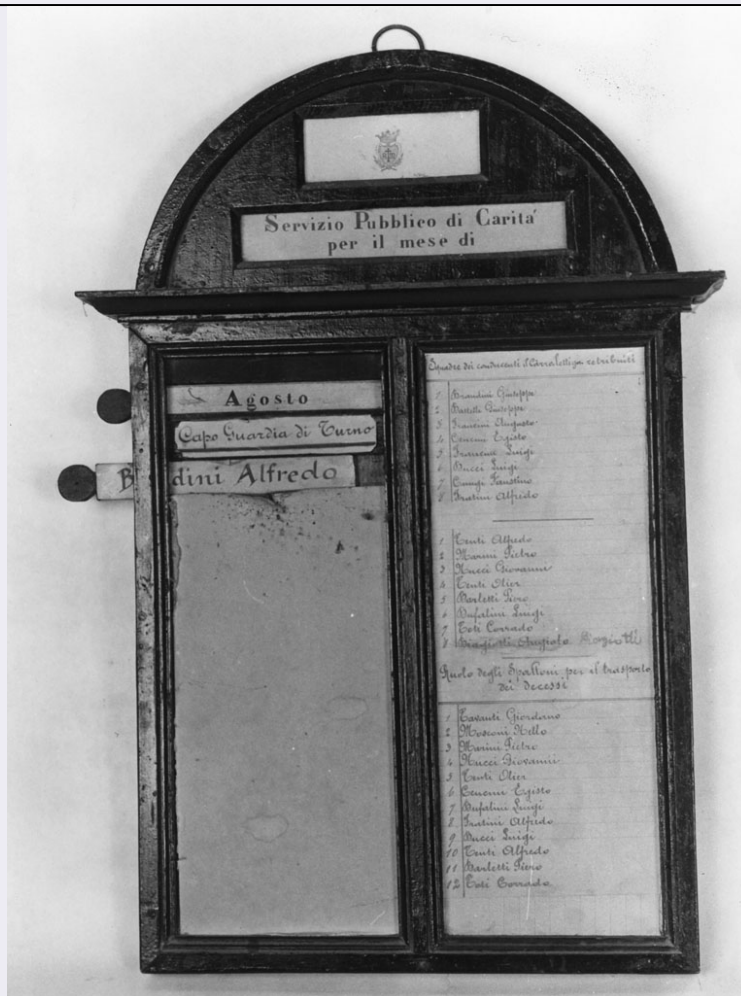 Servizio Pubblico di Carita'
per il mese di
Agosto
Capo Guardia di Turno
B dini Alfredo
Squadre dei conducenti il Carro lettiga retribuiti
1 Brandini Giuseppe
2 Giuseppe
3 Francini Augusto
4 Cenenni Egisto
5 Luigi
6 Bucci Luigi
7 Faustino
8 Fratini Alfredo
1 Tenti Alfredo
2 Marini Pietro
3 Nucci Giovanni
4 Tenti Olier
5 Barletti Piero
6 Bufalini Luigi
7 Toti Corrado
8 Biagiotti
Ruolo degli Spalloni per il trasporto
dei decessi
1 Tavanti Giordano
2 Mosconi Nello
3 Marini Pietro
4 Nucci Giovanni
5 Tenti Olier
6 Cenenni Egisto
7 Bufalini Luigi
8 Fratini Alfredo
9 Bucci Luigi
10 Tenti Alfredo
11 Barletti Piero
12 Toti Corrado